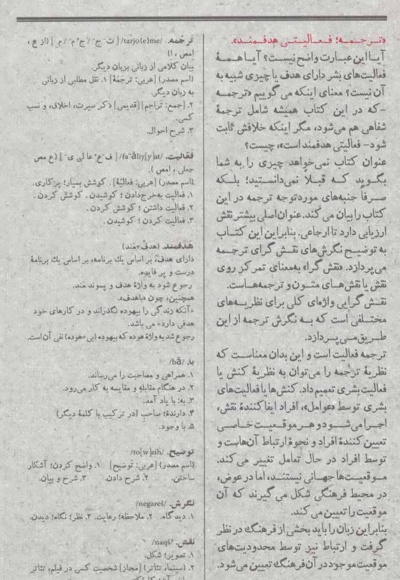 «ترجمه؛ فعالیتی هدفمند».
آیا این عبارت واضح نیست؟ آیا همهٔ
فعالیت‌های بشر دارای هدف یا چیزی شبیه به
آن نیست؟ معنای اینکه می گوییم «ترجمه
-که در این کتاب همیشه شامل ترجمهٔ
شفاهی هم می‌شود، مگر اینکه خلافش ثابت
شود- فعالیتی هدفمند است»، چیست؟
عنوان کتاب نمی‌خواهد چیزی را به شما
بگوید که قبلاً نمی‌دانستید؛ بلکه
صرفاً جنبه‌های مورد توجه ترجمه در این
کتاب را بیان می کند. عنوان اصلی بیشتر نقش
ارزیابی دارد تا ارجاعی. بنابراین این کتاب
به توضیح نگرش‌های نقش گرای ترجمه
می‌پردازد. «نقش گرا» به‌معنای تمرکز روی
نقش یا نقش‌های متون و ترجمه‌هاست.
نقش گرایی واژه‌ای کلی برای نظریه‌های
مختلفی است که به نگرش ترجمه از این
طریق می پردازد.
ترجمه فعالیت است و این بدان معناست که
نظریهٔ ترجمه را می‌توان به نظریهٔ کنش یا
فعالیت بشری تعمیم داد. کنش‌ها یا فعالیت‌های
بشری توسط «عوامل»، افراد ایفا کنندهٔ نقش،
اجرا می‌شود و هر موقعیت خاصی
تعیین کنندهٔ افراد و نحوهٔ ارتباط آن‌هاست و
توسط افراد در حال تعامل تغییر می کند.
موقعیت‌ها جهانی نیستند، اما در عوض،
در محیط فرهنگی شکل می گیرند که آن
موقعیت را تعیین می کند.
بنابراین زبان را باید بخشی از فرهنگ در نظر
گرفت و ارتباط نیز توسط محدودیت‌های
موقعیت موجود در آن فرهنگ تعیین می‌شود.
ترجمه. /tarjo(e)me/
بیان کلامی از زبانی بزبان دیگر.
(اسم مصدر) [عربی: ترجمة] ۱. نقل مطلبی از زبانی
به زبان دیگر.
۲. [جمع: تراجم] [قدیمی] ذکر سیرت، اخلاق، و نسب
کسی.
۳. شرح احوال.
فعالیت.
جعلی ، امص )
(اسم مصدر) [عربی: فعالیّة] . کوشش بسیار؛ پرکاری.
۱. فعالیت به‌خرج‌دادن ؛ کوشیدن . کوشش کردن .
۲. فعالیت داشتن ؛ کوشش کردن .
۳. فعالیت کردن ؛ کوشیدن .
هدفمند (هدف+مند)
دارای هدف؛ بر اساس یك برنامه، بر اساس یك برنامهٔ
درست و پر فایده.
رجوع شود به واژهٔ هدف و پسوند مند.
همچنین، چون «باهدف».
«آنکه زندگی را بیهوده نگذراند و در کارهای خود
هدفی دارد» می باشد.
رجوع شد به واژهٔ هوده که بیهوده (بی+هوده) نفی آن است.
۱. همراهی و مصاحبت را می‌رساند.
۲. در هنگام مقابله و مقایسه به کار می‌رود.
۳. به: با یاد آمد.
۴. دارنده؛ صاحب (در ترکیب با کلمهٔ دیگر)
۵. با وجود.
توضیح. /to[w]zih/
(اسم مصدر) [عربی: توضیح] ۱. واضح کردن؛ آشکار
ساختن. ۲. شرح دادن. ۳. شرح و بیان.
نگرش. /negareš/
۱. دیدگاه. ۲. ملاحظه؛ رعایت. ۳. نظر؛ نگاه؛ دیدن.
نقش. /naqš/
۱. تصویر؛ شکل.
۲. (سینما، تئاتر) [مجاز] شخصیت کسی در فیلم، تئاتر